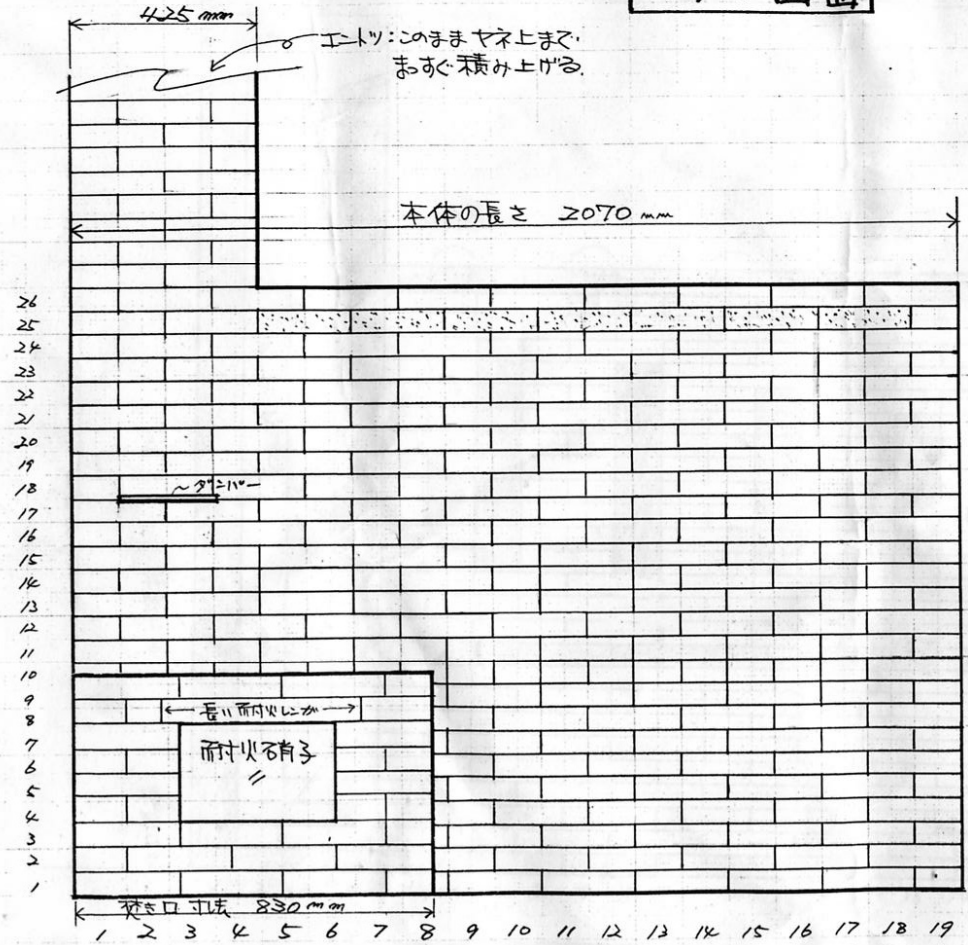 425 mm
エントツ:このままヤネ上まで
まっすぐ積み上げる.
本体の長さ 2070 mm
26
25
24
23
22
21
20
19
18
17
16
15
14
13
12
11
10
9
8
7
6
5
4
3
2
1
ダンパー
長い耐火レンガ
耐火硝子
焚き口寸法 830 mm
1 2 3 4 5 6 7 8 9 10 11 12 13 14 15 16 17 18 19